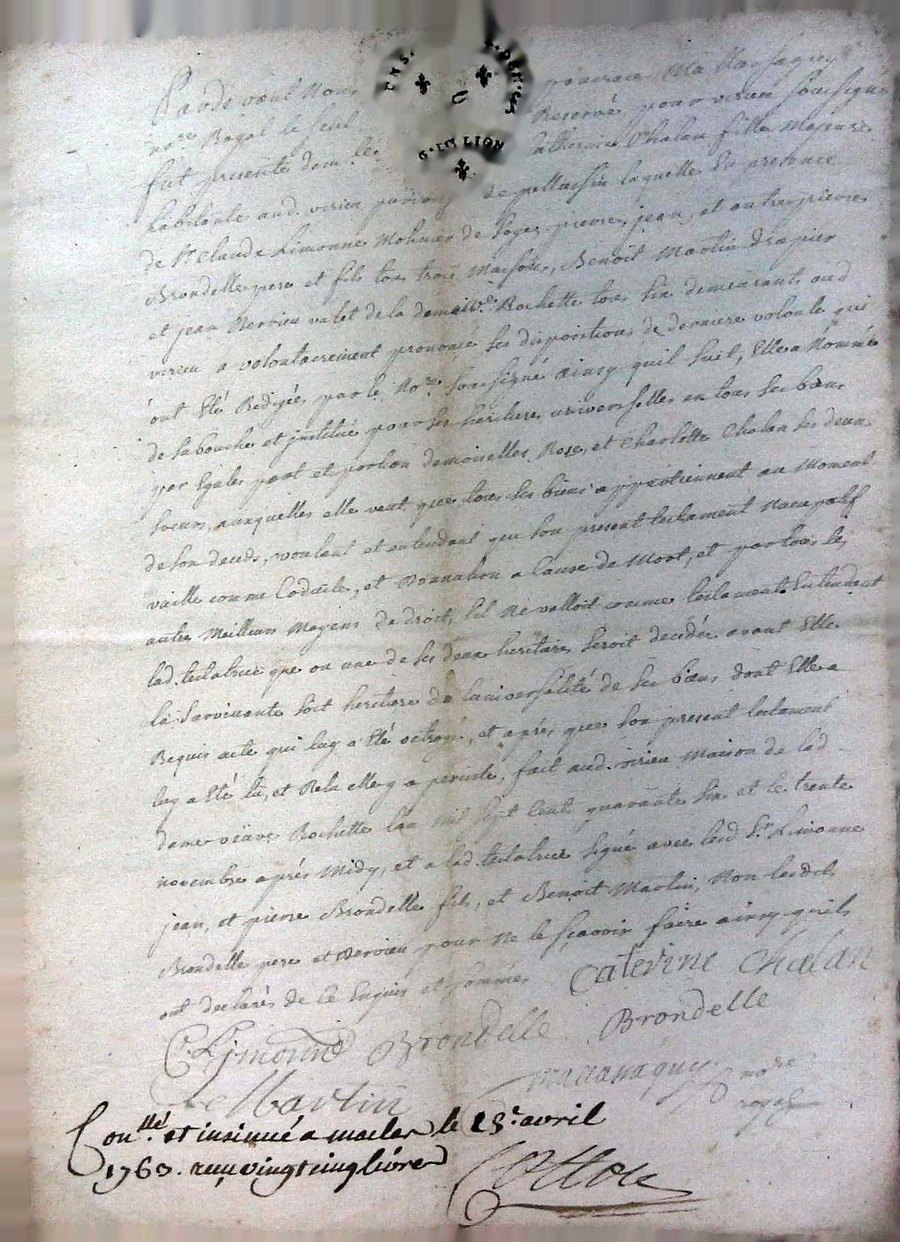 Pardevant Nous
no.re Royal le seul Reservé pour virieu soussigné
fut presente dem.lle Catherine Chalan fille Majeure
habitante aud. virieu paroisse de pellussin laquelle En presence
de S.r Claude Limonne Molinier de soyes, pierre, jean, et autre pierre
Brondelle pere et fils tous trois Massons, Benoit Martin drapier
et jean Bervieu valet de la dame v.e Rochette tous six demeurants aud
virieu a volontairement prononcé ses dispositions de derniere volonté qui
ont Eté Redigées par le No.re soussigné Ainsy quil suit, Elle a Nommée
de sa bouche et institué pour ses heritieres universelles en tous ses biens
par Egales part et portion demoiselles Rose, et Charlotte Chalan ses deux
soeurs, auxquelles elle veut que tous ses biens appartiennent au Moment
de son deceds, voulant et entendant que son present testament Nuncupatif
vaille comme Codicile, et Donnation a Cause de Mort, et par tous les
autres Meilleurs Moyens de droit, sil Ne valloit comme testament Entendant
lad. testatrice que ou une de ses deux heritieres seroit decidée avant Elle
la survivante soit heritiere de luniversalité de ses biens dont Elle a
Requis acte qui luy a Eté octroyé, et aprés que son present testament
luy a Eté lu, et Relu elle y a persisté, fait aud. virieu Maison de lad
dame veuve Rochette lan Mil sept Cent quarante six et le trente
novembre aprés Midy, et a lad. testatrice signé avec led S.r Limonne
jean, et pierre Brondelle fils, et Benoit Martin, Non lesdits
Brondelle pere et Bervieu pour Ne le sçavoir faire ainsy quils
ont declarés de Ce Enquis et sommés Caterine Chalan
C Limonne Brondelle Brondelle
Martin no.re
royal
Con.llé et insinué a maclas le 15.e avril
1763. reçu vingt cinq livres